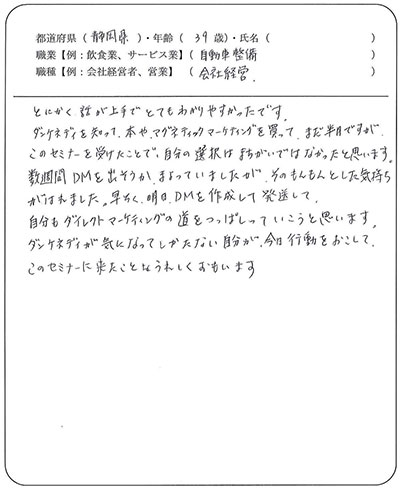 都道府県（静岡県）・年齢（39歳）・氏名（　　　）
職業【例：飲食業、サービス業】（自動車整備）
職種【例：会社経営者、営業】（会社経営.）
とにかく話が上手でとてもわかりやすかったです。
ダンケネディを知って、本や、マグネティックマーケティングを買って、まだ半月ですが、
このセミナーを受けたことで、自分の選択はまちがいではなかったと思います。
数週間DMを出そうか、まよっていましたが、そのもんもんとした気持ち
がはれました。早そく、明日、DMを作成して発送して、
自分もダイレクトマーケティングの道をつっぱしっていこうと思います。
ダンケネディが気になってしかたない自分が、今日行動をおこして、
このセミナーに来たことをうれしくおもいます